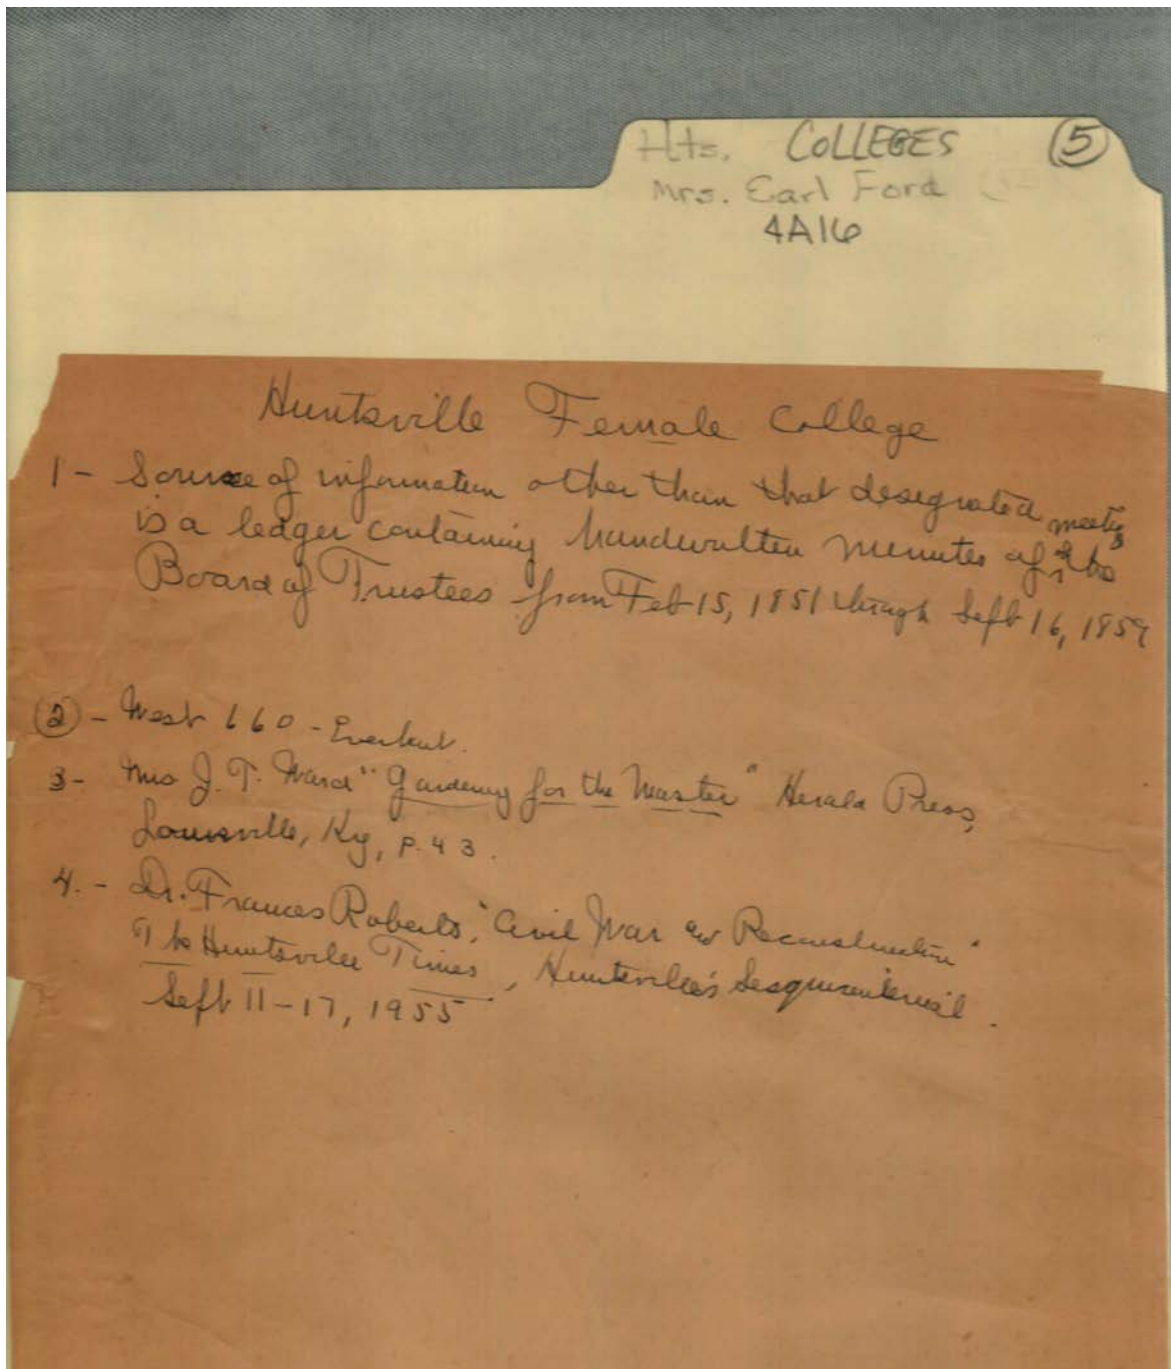 Hts. COLLEGES (5)
Mrs. Earl Ford
4A16
Huntsville Female College
1 - Source of information other than that designated
is a ledger containing handwritten minutes of meetings the
Board of Trustees from Feb 15, 1851 through Sept 16, 1859
(2) - West 660 -
3 - Mrs J. T. Ward "Gardening for the Master" Herald Press,
Louisville, Ky, P. 43.
4. - Dr. Frances Roberts, "Civil War and Reconstruction"
The Huntsville Times, Huntsville's Sesquicentennial.
Sept 11-17, 1955